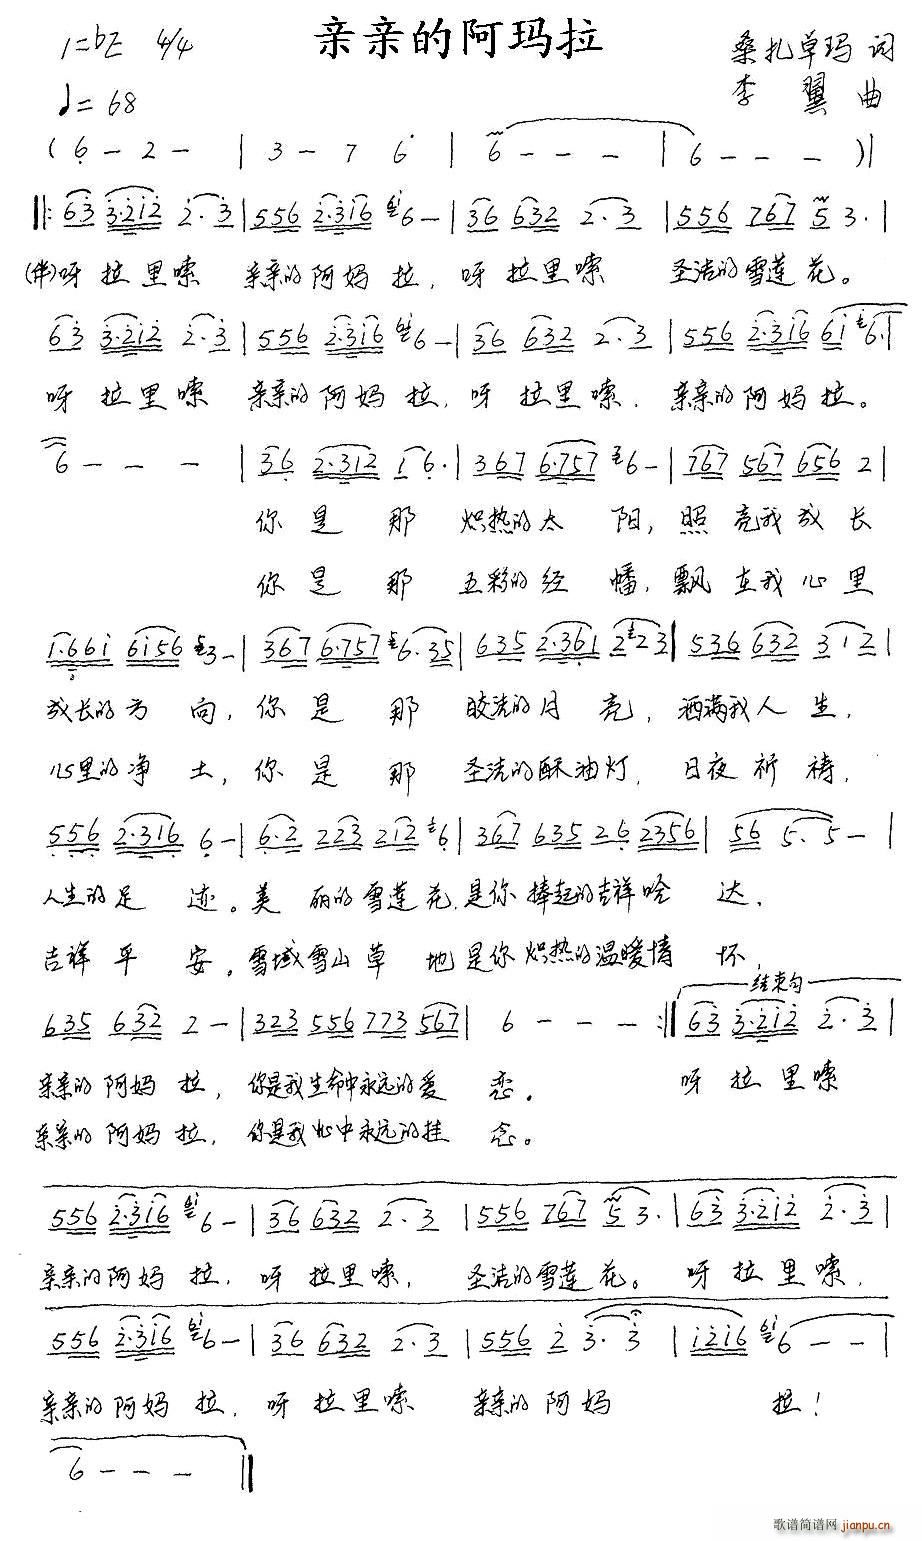 亲亲的阿玛拉
1=bE 4/4
桑扎草玛 词
李 翼 曲
♩=68
( 6 - 2 - | 3 - 7 6 | 6 - - - | 6 - - - )|
‖: 63 3·212 2·3 | 556 2·316 6 - | 36 632 2·3 | 556 767 5 3· |
(伴)呀拉里嗦 亲亲的阿妈拉,呀拉里嗦 圣洁的雪莲花。
63 3·212 2·3 | 556 2·316 6 - | 36 632 2·3 | 556 2·316 61 6· |
呀拉里嗦 亲亲的阿妈拉,呀拉里嗦. 亲亲的阿妈拉。
6 - - - | 36 2·312 16· | 367 6·757 6 - | 767 567 656 2 |
你是那 炽热的太阳,照亮我成长
你是那 五彩的经幡,飘在我心里
1·661 6156 3 - | 367 6·757 6·35 | 635 2·361 223 | 536 632 312 |
成长的方向,你是那 皎洁的月亮,洒满我人生,
心里的净土,你是那 圣洁的酥油灯,日夜祈祷,
556 2·316 6 - | 6·2 223 212 6 | 367 635 26 2356 | 56 5·5 - |
人生的足迹。美丽的雪莲花,是你捧起的吉祥哈达,
吉祥平安。雪域雪山草地是你炽热的温暖情怀,
结束句
635 632 2 - | 323 556 773 567 | 6 - - - :‖ 63 3·212 2·3 |
亲亲的阿妈拉,你是我生命中永远的爱恋。 呀拉里嗦
亲亲的阿妈拉,你是我心中永远的挂念。
556 2·316 6 - | 36 632 2·3 | 556 767 5 3· | 63 3·212 2·3 |
亲亲的阿妈拉,呀拉里嗦,圣洁的雪莲花。呀拉里嗦,
556 2·316 6 - | 36 632 2·3 | 556 2 3·3 | 1216 6 - - |
亲亲的阿妈拉,呀拉里嗦 亲亲的阿妈 拉!
6 - - - ‖
歌谱简谱网
jianpu.cn